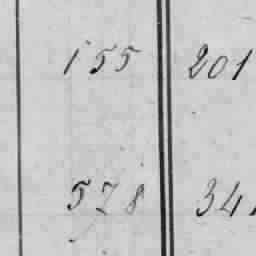 155 201
578 341